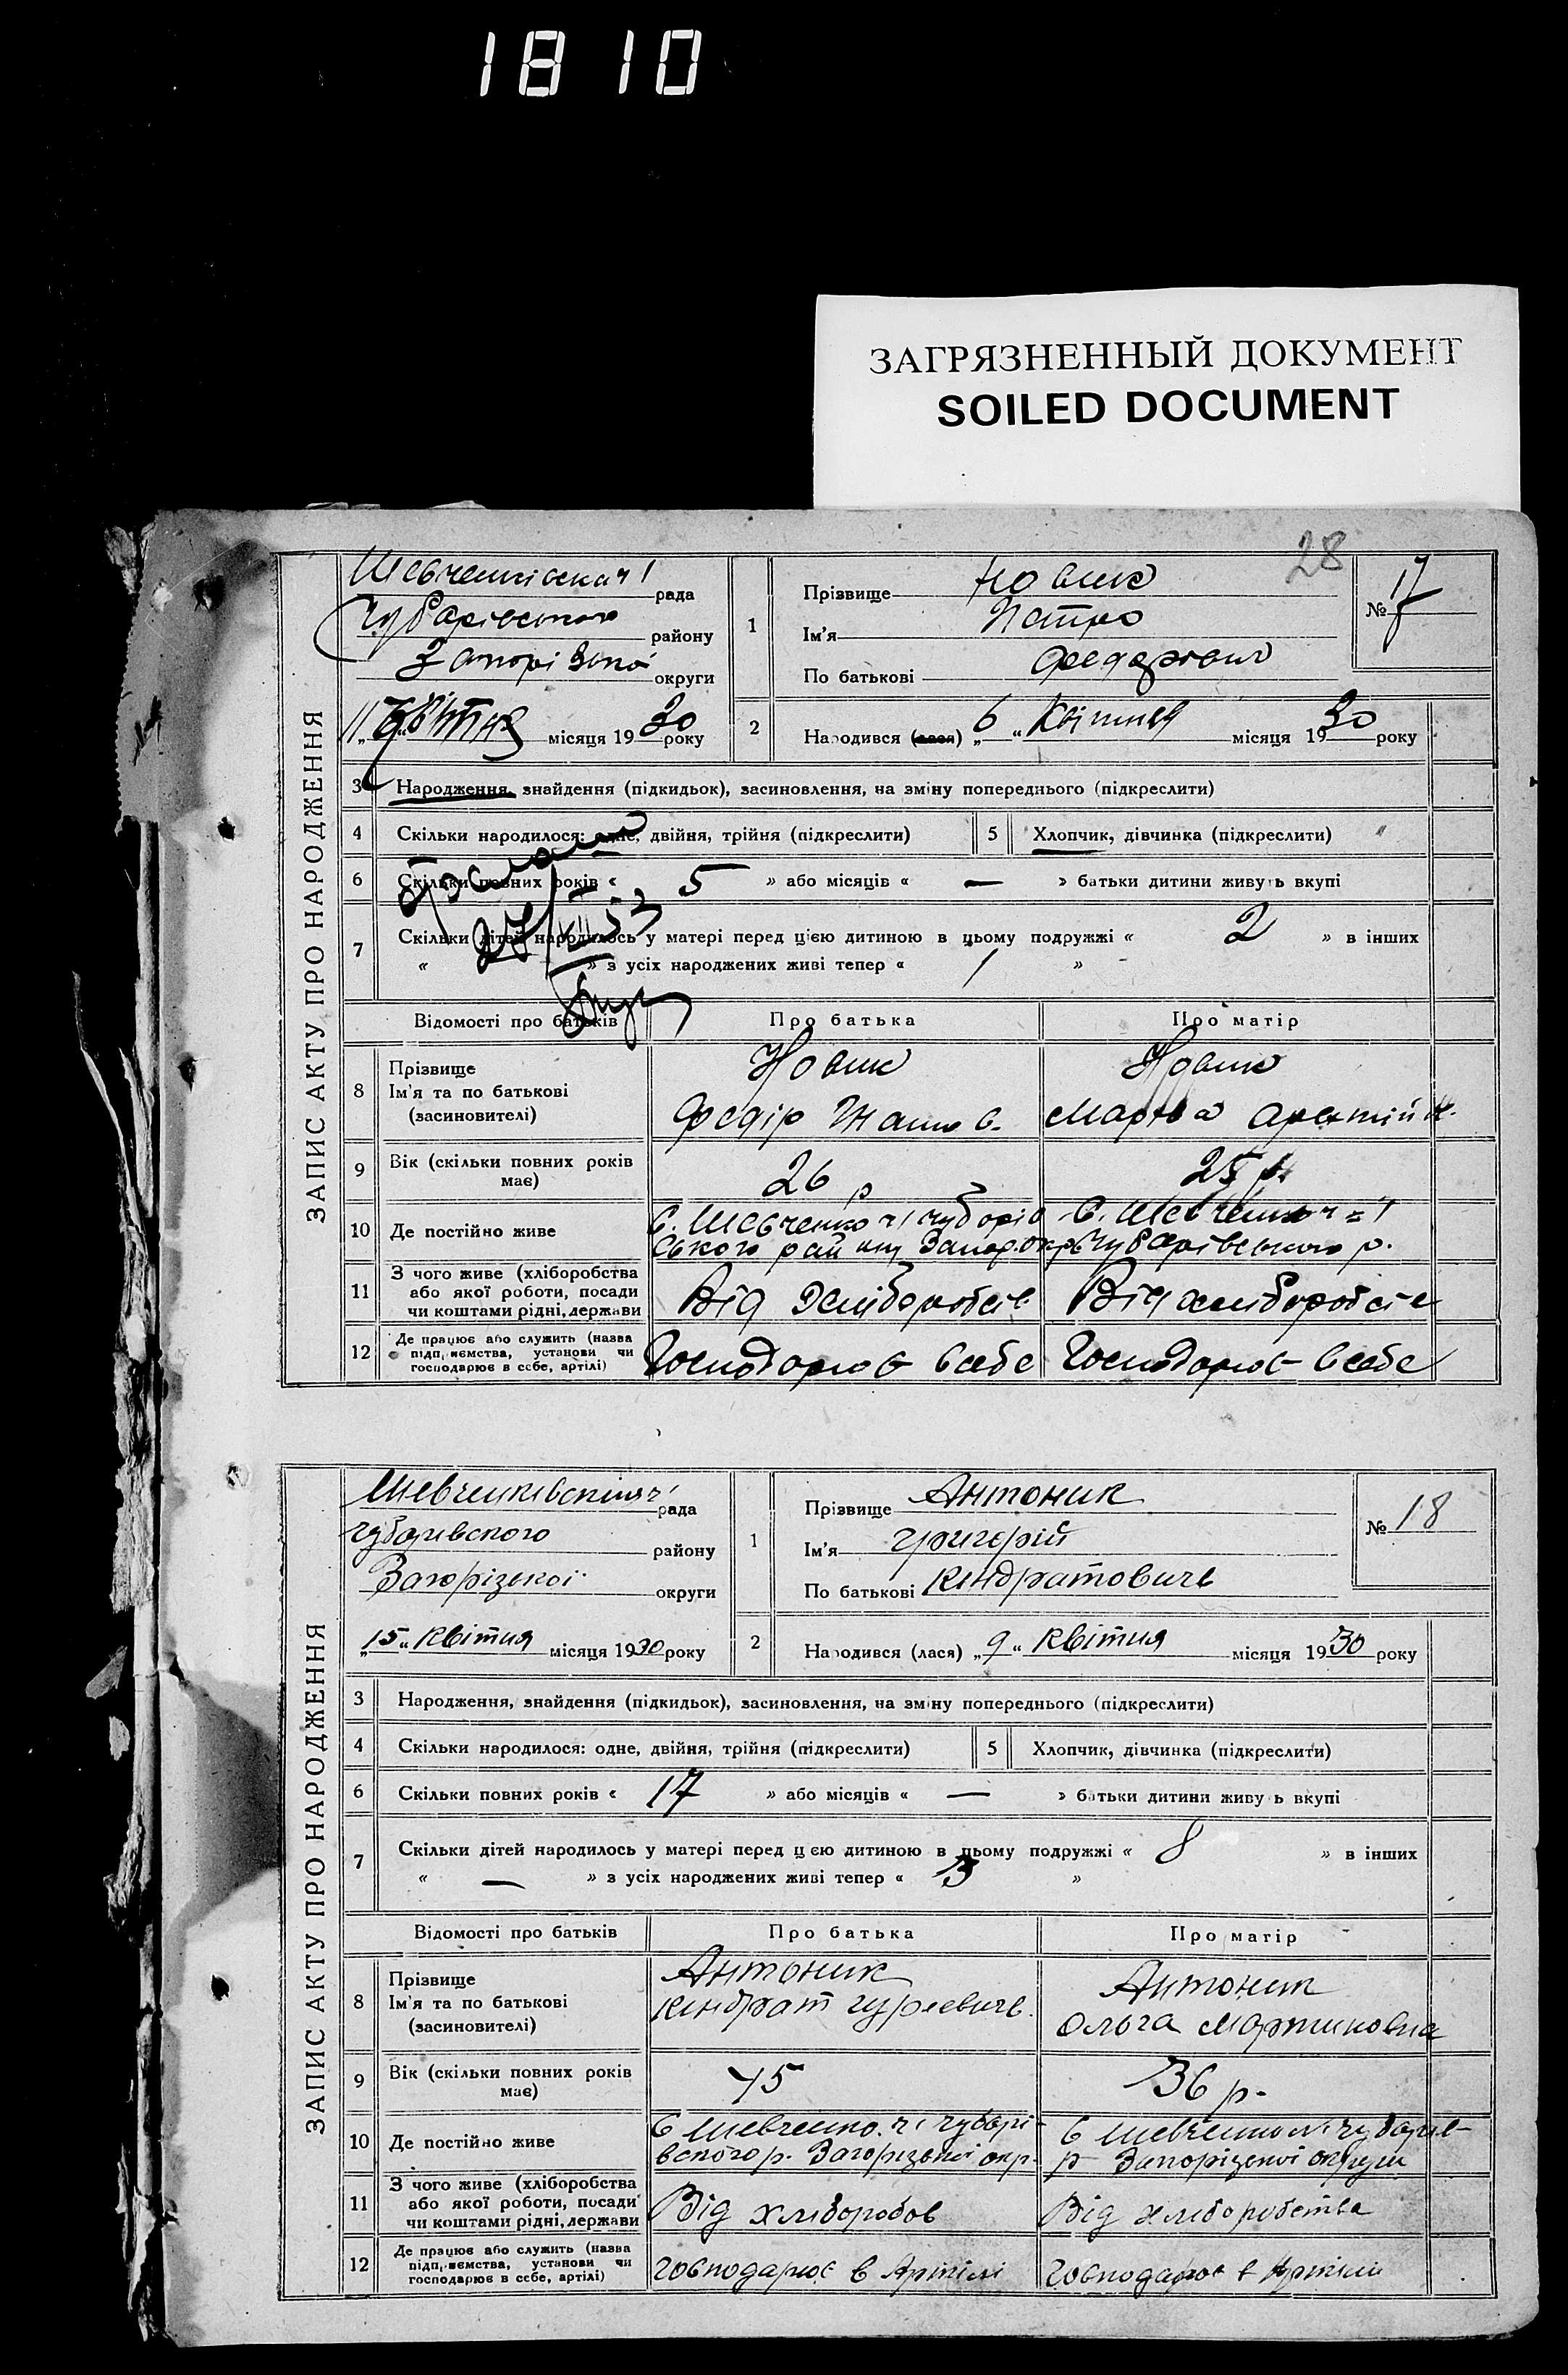 1810
ЗАГРЯЗНЕННЫЙ ДОКУМЕНТ
SOILED DOCUMENT
28
ЗАПИС АКТУ ПРО НАРОДЖЕННЯ
рада
району
округи
Квітня місяця 1930 року
1
Прізвище Новик
Ім'я Петро
По батькові Федорович
№ 17
2
Народився (лася) „6“ Квітня місяця 1930 року
3 Народження, знайдення (підкидьок), засиновлення, на зміну попереднього (підкреслити)
4 Скільки народилося: одне, двійня, трійня (підкреслити)
5 Хлопчик, дівчинка (підкреслити)
6 Скільки повних років « 5 » або місяців « — » батьки дитини живуть вкупі
7 Скільки дітей народилось у матері перед цією дитиною в цьому подружжі « 2 » в інших
« » з усіх народжених живі тепер « 1 »
Відомості про батьків Про батька Про матір
8 Прізвище
Ім'я та по батькові
(засновителі)
Новик
Федір
Новик
Марфа
9 Вік (скільки повних років має)
26 р
25 р.
10 Де постійно живе
11 З чого живе (хліборобства
або якої роботи, посади
чи коштами рідні, держави
Від
Від
12 Де працює або служить (назва
підприємства, установи чи
господарює в себе, артілі)
Господарює в себе
Господарює в себе
ЗАПИС АКТУ ПРО НАРОДЖЕННЯ
рада
Чубарівского району
Запорізької округи
„15“ Квітня місяця 1930 року
1
Прізвище Антоник
Ім'я Григорій
По батькові Кендратовичь
№ 18
2
Народився (лася) „9“ Квітня місяця 1930 року
3 Народження, знайдення (підкидьок), засиновлення, на зміну попереднього (підкреслити)
4 Скільки народилося: одне, двійня, трійня (підкреслити)
5 Хлопчик, дівчинка (підкреслити)
6 Скільки повних років « 17 » або місяців « — » батьки дитини живу ь вкупі
7 Скільки дітей народилось у матері перед цією дитиною в цьому подружжі « 8 » в інших
« — » з усіх народжених живі тепер « 3 »
Відомості про батьків Про батька Про матір
8 Прізвище
Ім'я та по батькові
(засиновителі)
Антоник
Кендрат Гурієвичь
Антоник
Ольга Мартиновна
9 Вік (скільки повних років має)
45
36 р.
10 Де постійно живе
11 З чого живе (хліборобства
або якої роботи, посади
чи коштами рідні, держави
Від хлiборобов
Від хліборобства
12 Де працює або служить (назва
підприємства, установи чи
господарює в себе, артілі)
Господарює в Артілі
Господарює в Артілі